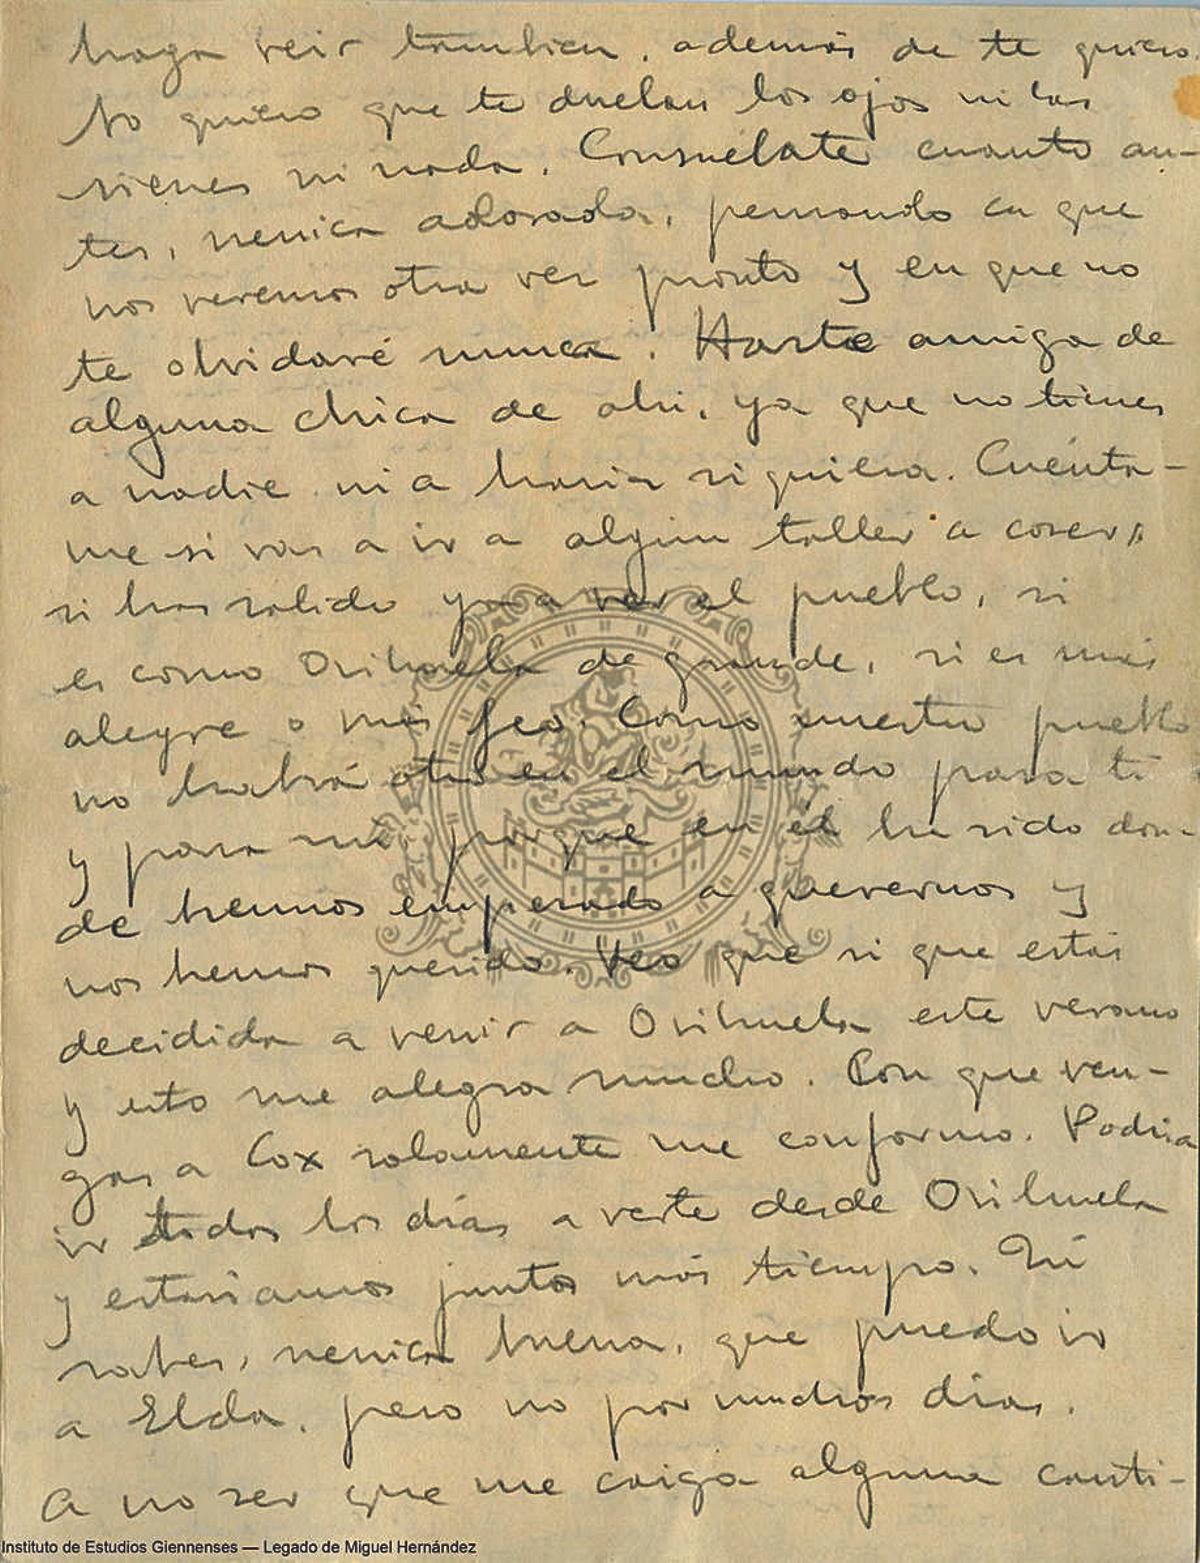 haga reir tambien, además de te quiero.
No quiero que te duelan los ojos ni las
sienes ni nada. Consuélate cuanto an-
tes, nenica adorada, pensando en que
nos veremos otra vez pronto y en que no
te olvidaré nunca. Harte amiga de
alguna chica de ahi, ya que no tienes
a nadie ni a María siquiera. Cuénta-
me si vas a ir a algun taller a coser,
si has salido ya a ver el pueblo, si
es como Orihuela de grande, si es más
alegre o más feo. Como nuestro pueblo
no habrá otro en el mundo para ti
y para mí porque en él ha sido don-
de hemos empezado a querernos y
nos hemos querido. Veo que si que estás
decidida a venir a Orihuela este verano
y esto me alegra mucho. Con que ven-
gas a Cox solamente me conformo. Podria
ir todos los días a verte desde Orihuela
y estariamos juntos más tiempo. Tú
sabes, nenica buena, que puedo ir
a Elda, pero no por muchos dias.
A no ser que me caiga alguna canti-
Instituto de Estudios Giennenses — Legado de Miguel Hernández